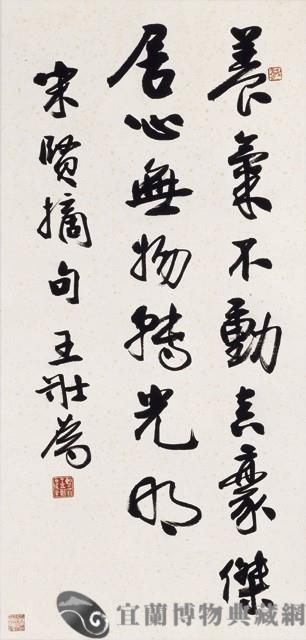 養氣不動真豪傑
居心無物轉光明
宋賢摘句 王壯為
宜蘭博物典藏網